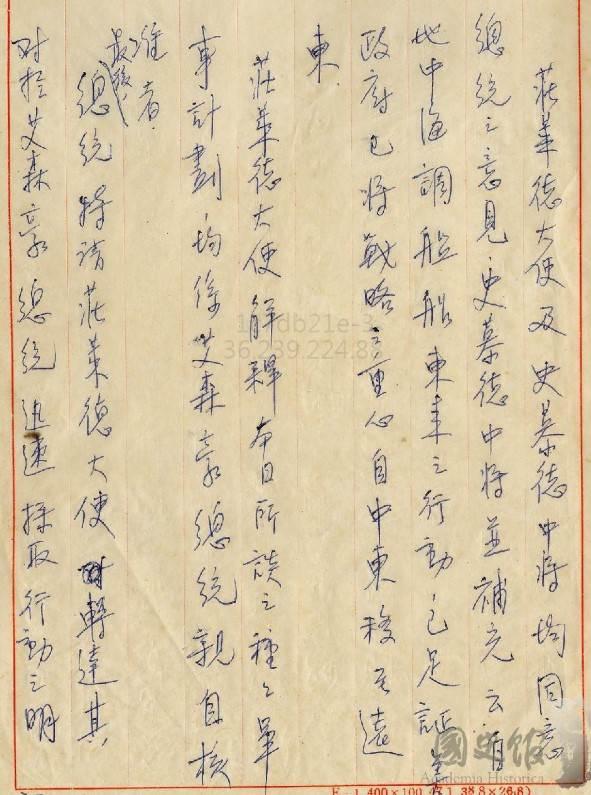 莊萊德大使及史慕德中將均同意
總統之意見,史慕德中將並補充云:自
地中海調船艦東來之行動已足証美
政府已將戰略之重心自中東移至遠
東.
莊萊德大使解釋本日所談之種種軍
事計劃,均係艾森豪總統親自核
准者.
最後,
總統特請莊萊德大使轉達其
对於艾森豪總統迅速採取行動之明
國史館
Academia Historica
36.239.224.8